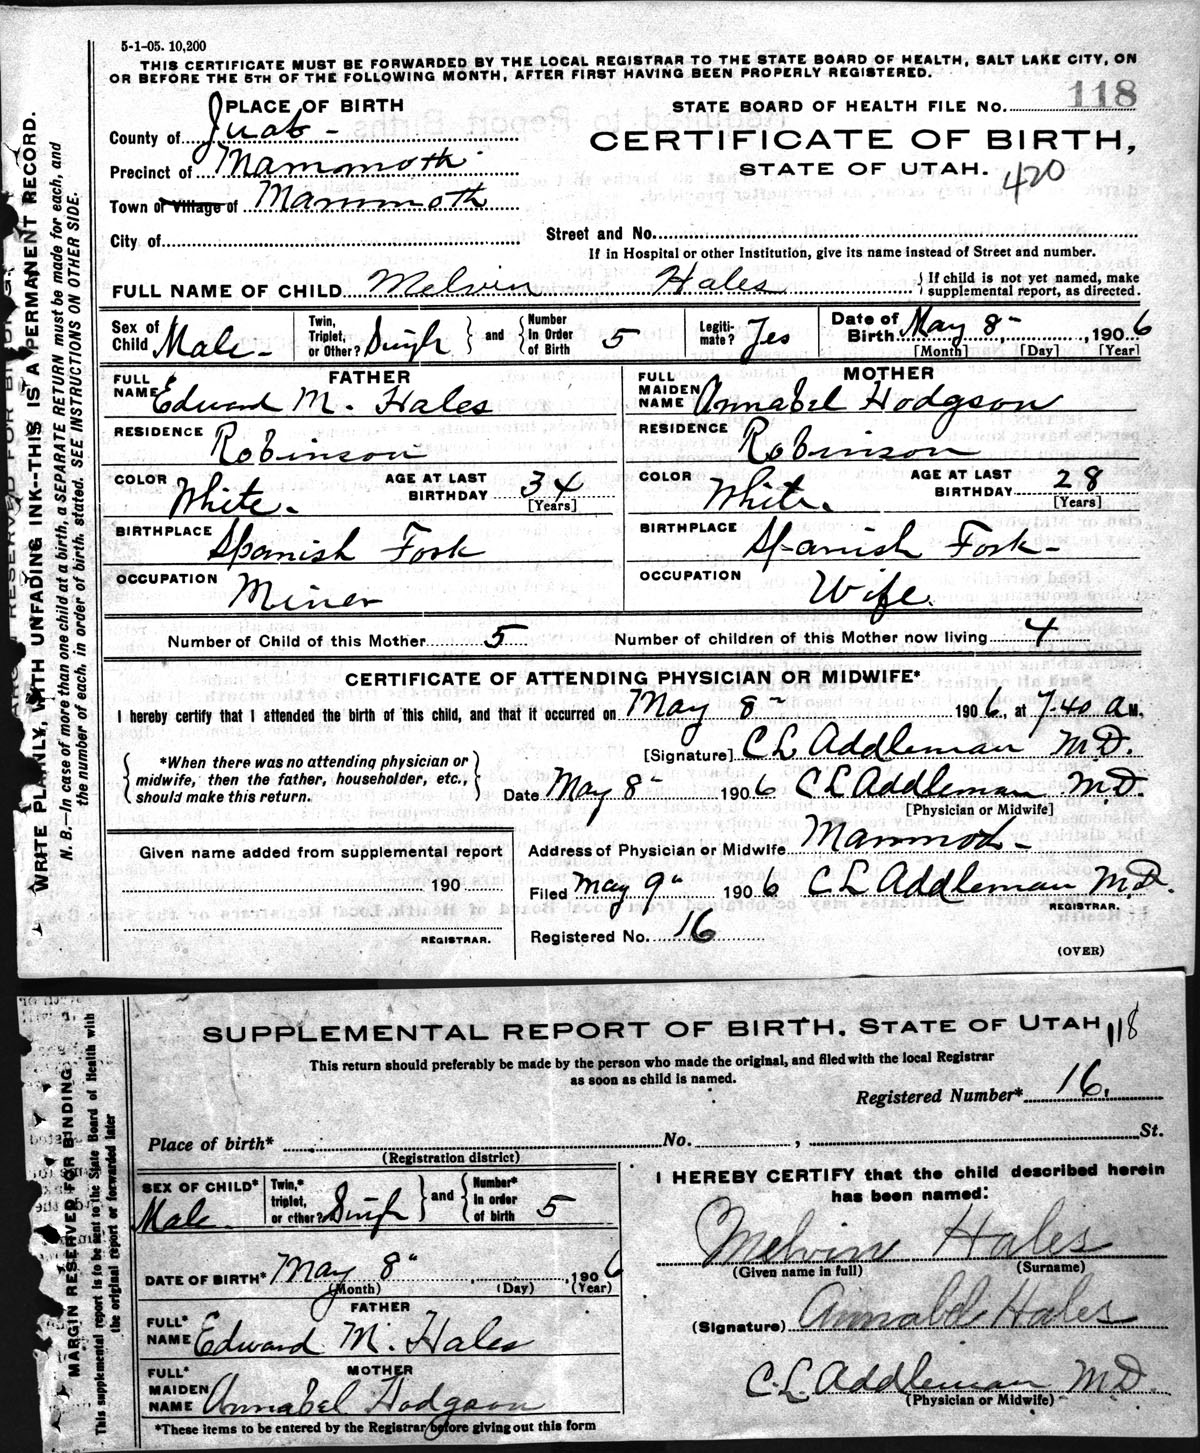 5-1-05. 10,200
THIS CERTIFICATE MUST BE FORWARDED BY THE LOCAL REGISTRAR TO THE STATE BOARD OF HEALTH, SALT LAKE CITY, ON
OR BEFORE THE 5TH OF THE FOLLOWING MONTH, AFTER FIRST HAVING BEEN PROPERLY REGISTERED.
PLACE OF BIRTH
STATE BOARD OF HEALTH FILE No. 118
County of Juab
CERTIFICATE OF BIRTH,
Precinct of Mammoth
STATE OF UTAH. 420
Town or Village of Mammoth
City of
Street and No.
If in Hospital or other Institution, give its name instead of Street and number.
FULL NAME OF CHILD Melvin Hales
If child is not yet named, make supplemental report, as directed.
Sex of Child Male
Twin, Triplet, or Other? Singl and Number in Order of Birth 5
Legitimate? Yes
Date of Birth May 8", 1906
[Month] [Day] [Year]
FATHER
FULL NAME Edward M. Hales
MOTHER
FULL MAIDEN NAME Annabel Hodgson
RESIDENCE Robinson
RESIDENCE Robinson
COLOR White. AGE AT LAST BIRTHDAY 34 [Years]
COLOR White. AGE AT LAST BIRTHDAY 28 [Years]
BIRTHPLACE Spanish Fork
BIRTHPLACE Spanish Fork
OCCUPATION Miner
OCCUPATION Wife.
Number of Child of this Mother 5 Number of children of this Mother now living 4
CERTIFICATE OF ATTENDING PHYSICIAN OR MIDWIFE*
I hereby certify that I attended the birth of this child, and that it occurred on May 8" 1906, at 7.40 a M.
[Signature] C L Addleman M.D.
*When there was no attending physician or midwife, then the father, householder, etc., should make this return.
Date May 8" 1906 C L Addleman M.D.
[Physician or Midwife]
Given name added from supplemental report
190
REGISTRAR.
Address of Physician or Midwife Mammoth
Filed May 9" 1906 C L Addleman M.D.
REGISTRAR.
Registered No. 16
(OVER)
WRITE PLAINLY, WITH UNFADING INK--THIS IS A PERMANENT RECORD.
N. B.—In case of more than one child at a birth, a SEPARATE RETURN must be made for each, and
the number of each, in order of birth, stated. SEE INSTRUCTIONS ON OTHER SIDE.
SUPPLEMENTAL REPORT OF BIRTH. STATE OF UTAH 118
This return should preferably be made by the person who made the original, and filed with the local Registrar
as soon as child is named.
Registered Number* 16.
Place of birth* No. , St.
(Registration district)
SEX OF CHILD* Male
Twin,* triplet, or other? Singl and Number* in order of birth 5
DATE OF BIRTH* May 8" , 1906
(Month) (Day) (Year)
FATHER
FULL* NAME Edward M. Hales
MOTHER
FULL* MAIDEN NAME Annabel Hodgson
*These items to be entered by the Registrar before giving out this form
I HEREBY CERTIFY that the child described herein
has been named:
Melvin Hales
(Given name in full) (Surname)
(Signature) Annabel Hales
C. L. Addleman M.D.
(Physician or Midwife)
MARGIN RESERVED FOR BINDING
This supplemental report is to be sent to the State Board of Health with
the original report or forwarded later